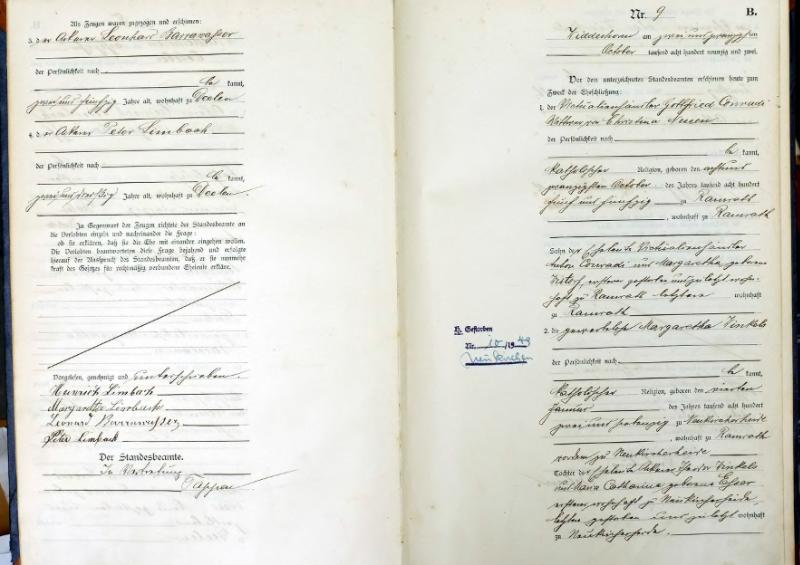 Als Zeugen waren zugezogen und erschienen:
3. der Ackerer Leonhard Barrawasser
der Persönlichkeit nach
be kannt,
zwei und fünfzig Jahre alt, wohnhaft zu Deelen
4. der Ackerer Peter Limbach
der Persönlichkeit nach
be kannt,
zwei und dreißig Jahre alt, wohnhaft zu Deelen.
In Gegenwart der Zeugen richtete der Standesbeamte an
die Verlobten einzeln und nacheinander die Frage:
ob sie erklären, daß sie die Ehe mit einander eingehen wollen.
Die Verlobten beantworteten diese Frage bejahend und erfolgte
hierauf der Ausspruch des Standesbeamten, daß er sie nunmehr
kraft des Gesetzes für rechtmäßig verbundene Eheleute erkläre.
Vorgelesen, genehmigt und unterschrieben.
Heinrich Limbach
Margaretha Limbach
Leonard Barrawasser
Peter Limbach
Der Standesbeamte.
In Vertretung
Tappen
Nr. 9
B.
am zwei und zwanzigsten
October tausend acht hundert neunzig und zwei.
Vor dem unterzeichneten Standesbeamten erschienen heute zum
Zweck der Eheschließung:
1. der Victualienhändler Gottfried Conradi
Wittwer von Christina Neuen
der Persönlichkeit nach
be kannt,
katholischer Religion, geboren den acht und
zwanzigsten October des Jahres tausend acht hundert
fünf und fünfzig zu Ramrath
, wohnhaft zu Ramrath
Sohn der Eheleute Victualienhändler
Anton Conradi und Margaretha geborene
ersterer gestorben und zuletzt wohn-
haft zu Ramrath letztere wohnhaft
zu Ramrath
2. die gewerblose Margaretha Vinkels
der Persönlichkeit nach
be kannt,
katholischer Religion, geboren den vierten
Januar des Jahres tausend acht hundert
zwei und siebenzig zu Neukircherheide
, wohnhaft zu Ramrath
vordem zu Neukircherheide
Tochter der Eheleute Ackerer Theodor Vinkels
und Maria Catharina geborene Esser
ersterer wohnhaft zu Neukircherheide
letztere gestorben und zuletzt wohnhaft
zu Neukircherheide.
H. Gestorben
Nr. 10/1949
Neukirchen